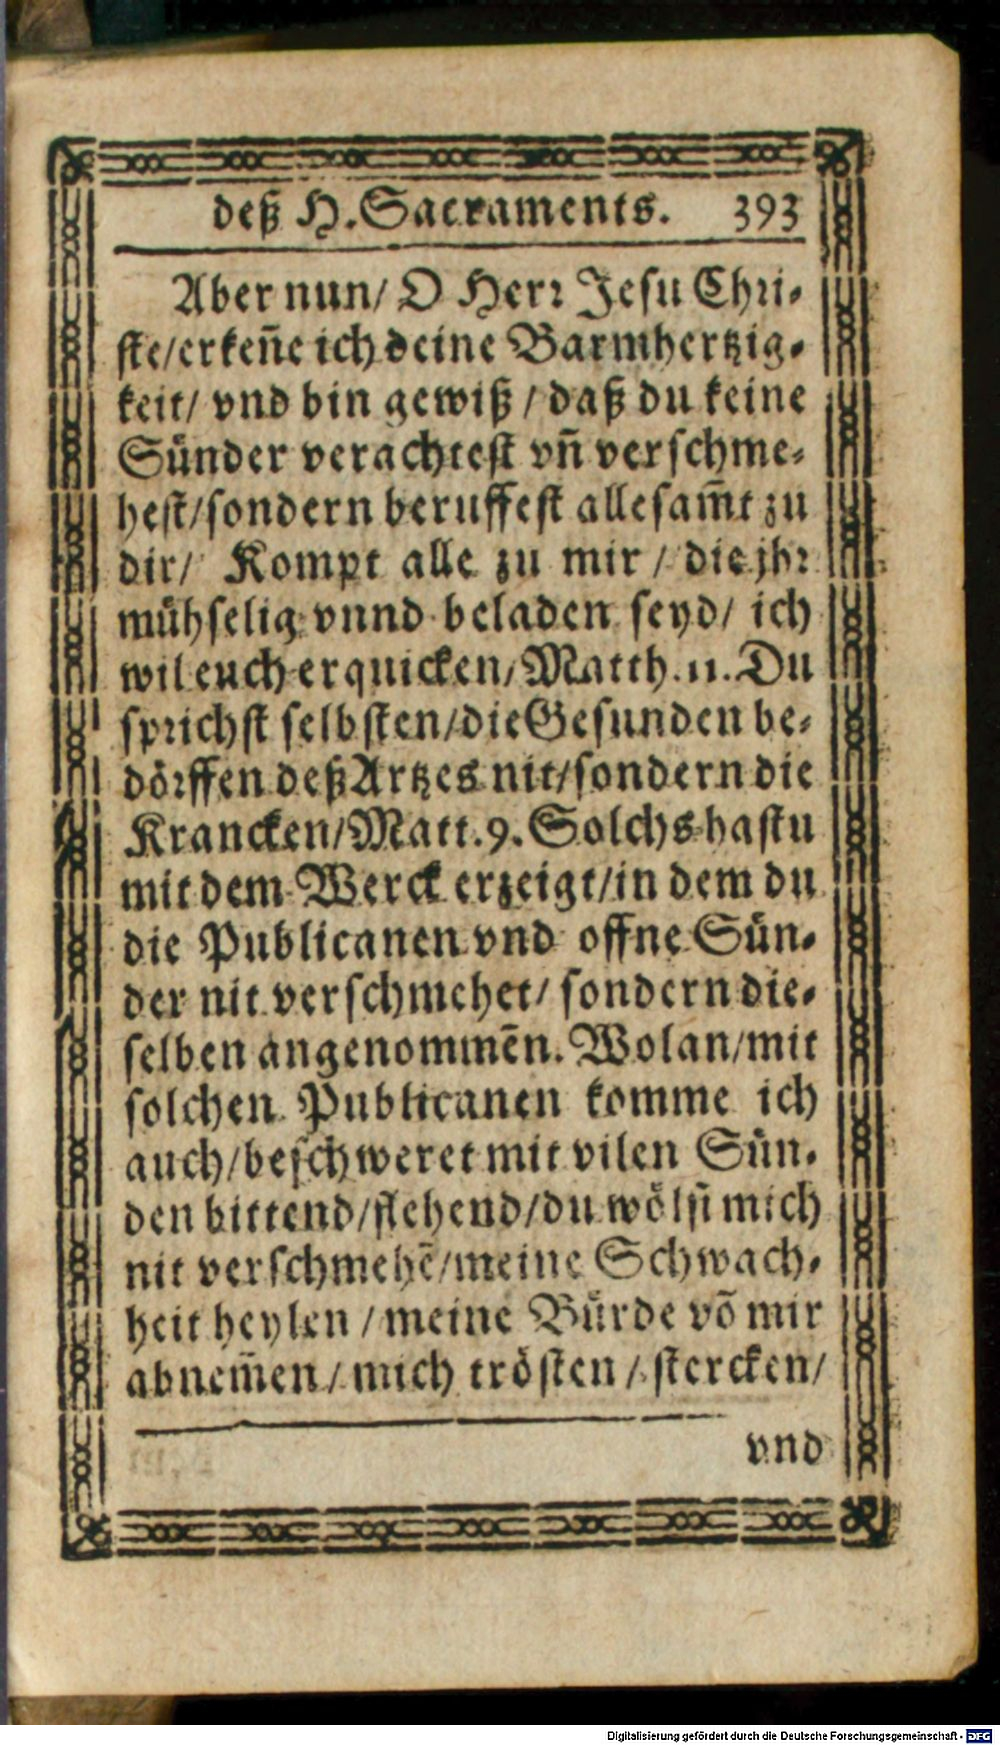 deß H. Sacraments. 393
Aber nun/ O Herr Jesu Chri-
ste/erkeñe ich deine Barmhertzig-
keit/ vnd bin gewiß / daß du keine
Sünder verachtest vñ verschme-
hest/sondern beruffest allesam̃t zu
dir/ Kompt alle zu mir / die jhr
mühselig vnnd beladen seyd/ ich
wil euch erquicken/Matth.11. Du
sprichst selbsten/die Gesunden be-
dörffen deß Artzes nit/sondern die
Krancken/Matt.9. Solchs hastu
mit dem Werck erzeigt/in dem du
die Publicanen vnd offne Sün-
der nit verschmehet/ sondern die-
selben angenommẽn. Wolan/mit
solchen Publicanen komme ich
auch/beschweret mit vilen Sün-
den bittend/flehend/du wölst mich
nit verschmehẽ/meine Schwach-
heit heylen / meine Bürde võ mir
abnem̃en / mich trösten / stercken/
vnd
Digitalisierung gefördert durch die Deutsche Forschungsgemeinschaft - DFG